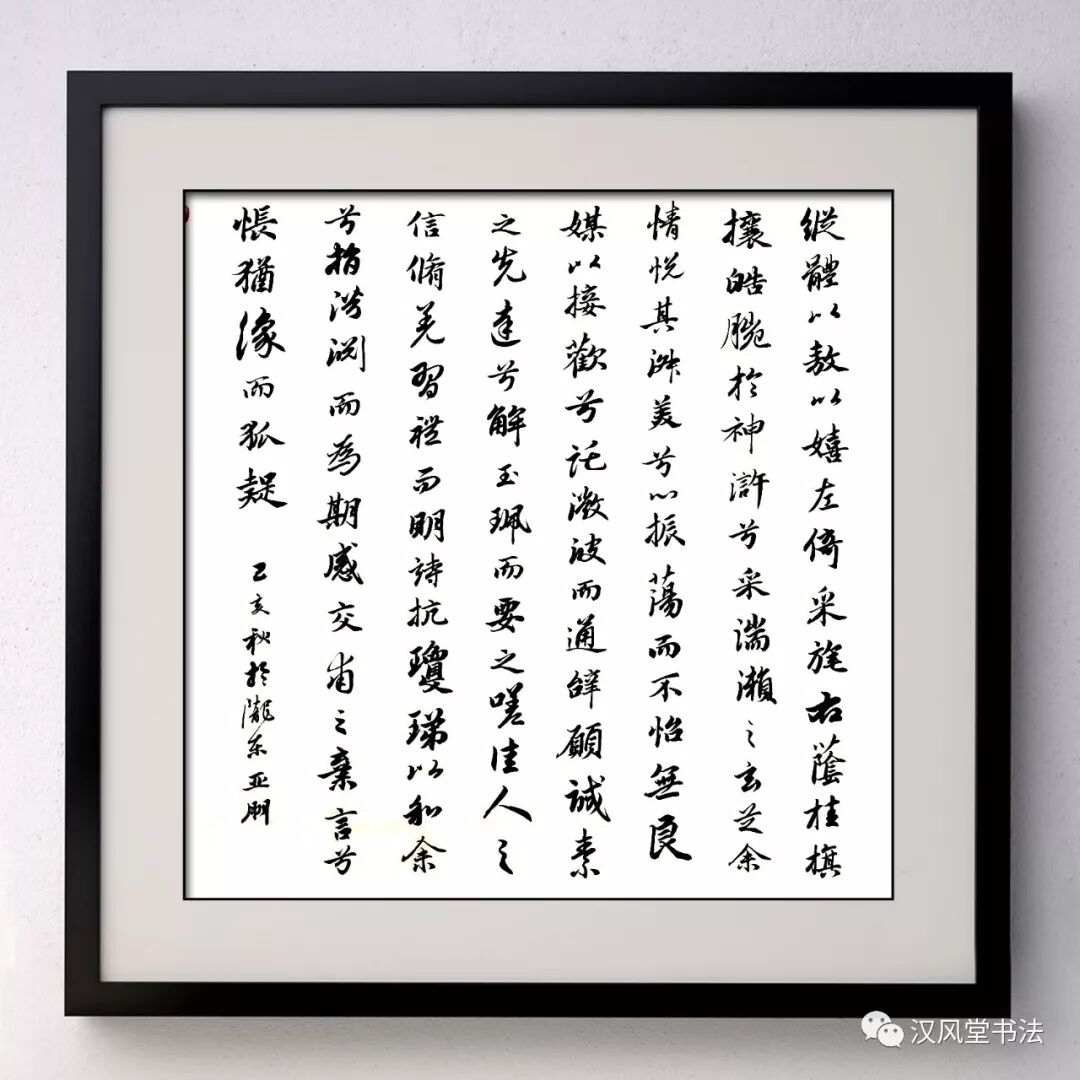 縱體以敖以嬉左倚采旄右蔭桂旗
攘皓腕於神滸兮采湍瀨之玄芝余
情悅其淑美兮心振蕩而不怡無良
媒以接歡兮託微波而通辭願誠素
之先達兮解玉珮而要之嗟佳人之
信脩羌習禮而明詩抗瓊珶以和余
兮指潛淵而為期感交甫之棄言兮
悵猶像而狐疑
己亥秋於隴东亚朋
汉风堂书法